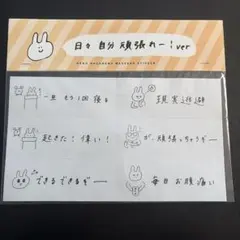 日々 自分 頑張れー！ver
一旦 もう1回 寝る
現実逃避
起きた！偉い！
が、頑張っちゃうぞー
できるできるぞー
毎日お腹痛い